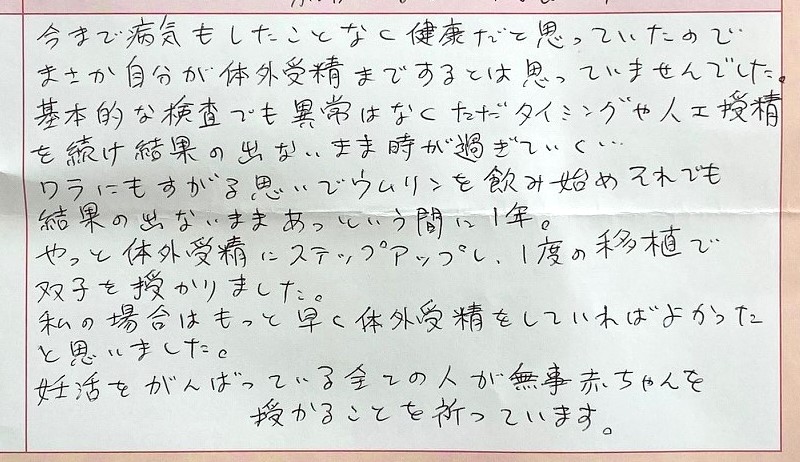 今まで病気もしたことなく健康だと思っていたので
まさか自分が体外受精までするとは思っていませんでした。
基本的な検査でも異常はなくただタイミングや人工授精
を続け結果の出ないまま時が過ぎていく…
ワラにもすがる思いでウムリンを飲み始めそれでも
結果の出ないままあっという間に1年。
やっと体外受精にステップアップし、1度の移植で
双子を授かりました。
私の場合はもっと早く体外受精をしていればよかった
と思いました。
妊活をがんばっている全ての人が無事赤ちゃんを
授かることを祈っています。